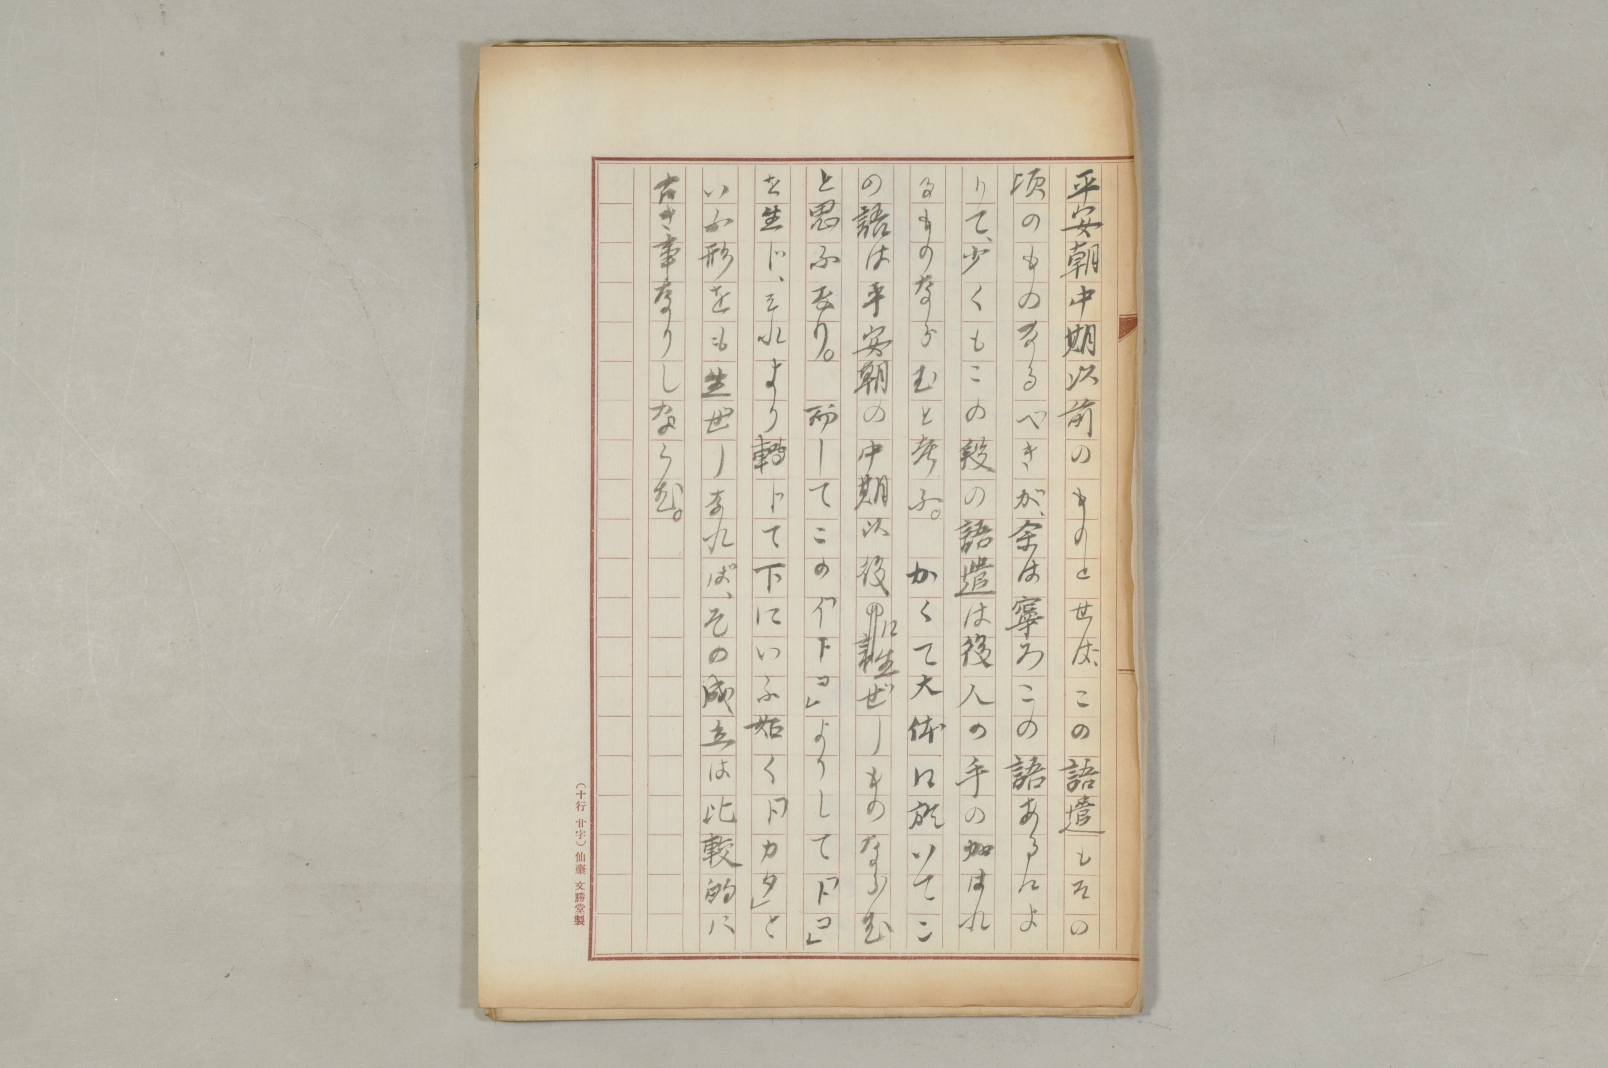 平安朝中期以前のものとせば、この語遣もその
頃のものなるべきが、余は寧ろこの語あるによ
りて、少くもこの段の語遣は後人の手の加はれ
るものならむと考ふ。 かくて大体に於いてこ
の語は平安朝の中期以後に生ぜしものならむ
と思ふなり。 而してこの「イドコ」よりして「ドコ」
を生じ、それより轉じて下にいふ如く「ドカタ」と
いふ形をも生ぜしなれば、その成立は比較的に
古き事なりしならむ。
(十行 廿字) 仙臺 文勝堂製